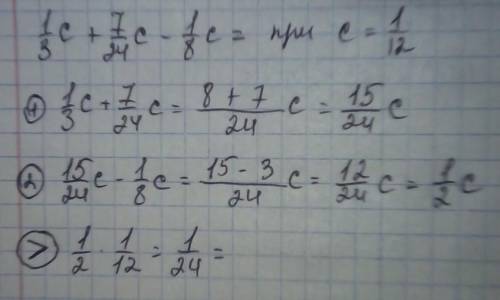 1/3 c + 7/24 c - 1/8 c = при c = 1/12
① 1/3 c + 7/24 c = (8 + 7)/24 c = 15/24 c
② 15/24 c - 1/8 c = (15 - 3)/24 c = 12/24 c = 1/2 c
> 1/2 · 1/12 = 1/24 =